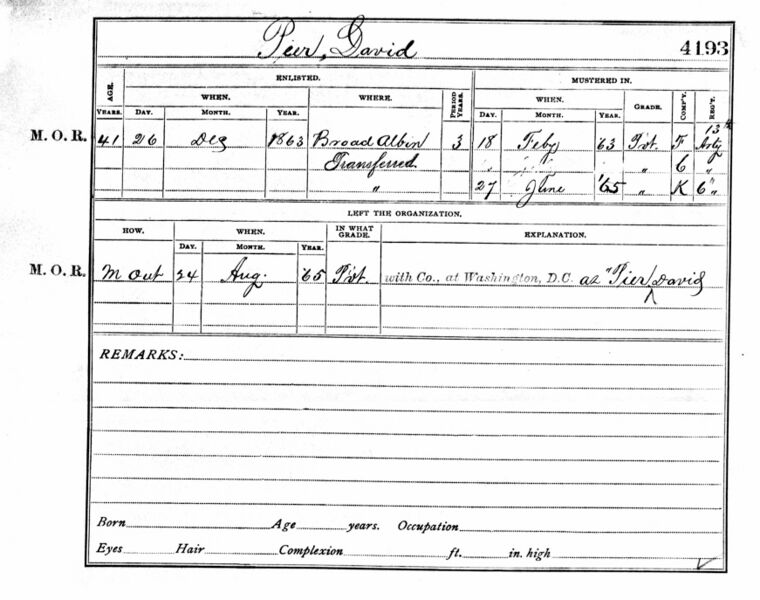 Pier, David 4193
ENLISTED. MUSTERED IN.
AGE. WHEN. WHERE. PERIOD YEARS. WHEN. GRADE. COMP'Y. REG'T.
YEARS. DAY. MONTH. YEAR. DAY. MONTH. YEAR.
M. O. R. 41 26 Dec 1863 Broad Albin 3 18 Feby '63 Pvt. F 13th Arty
Transferred " C "
" 27 June '65 " K 6 "
LEFT THE ORGANIZATION.
HOW. WHEN. IN WHAT GRADE. EXPLANATION.
DAY. MONTH. YEAR.
M. O. R. M Out 24 Aug. '65 Pvt. with Co., at Washington, D.C. as "Pier, David
REMARKS:
Born Age years. Occupation
Eyes Hair Complexion ft. in. high